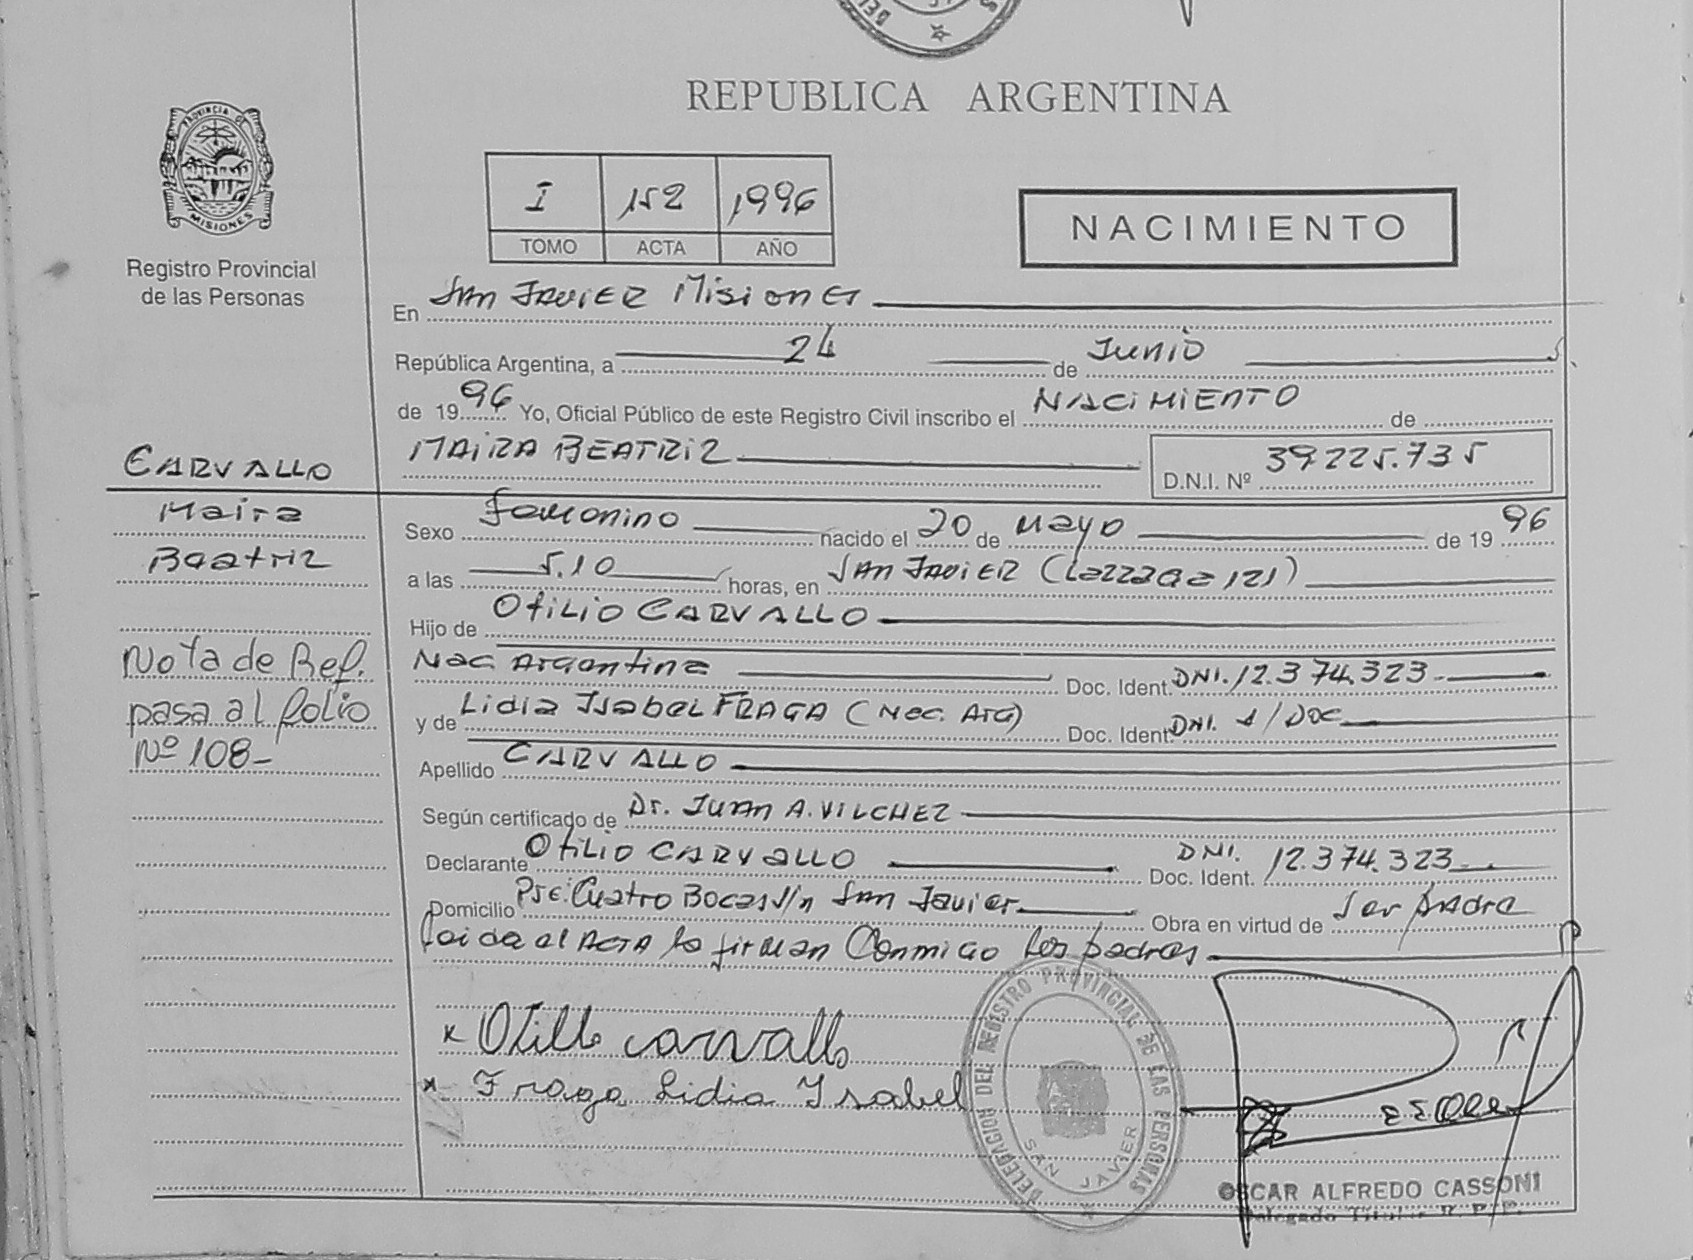 REPUBLICA ARGENTINA
PROVINCIA DE MISIONES
Registro Provincial
de las Personas
I 152 1996
TOMO ACTA AÑO
NACIMIENTO
En San Javier Misiones
República Argentina, a 24 de Junio
de 1996 Yo, Oficial Público de este Registro Civil inscribo el NACIMIENTO de
CARVALLO
MAIRA BEATRIZ D.N.I. Nº 39225.735
Maira
Beatriz
Sexo Femenino nacido el 20 de Mayo de 1996
a las 5.10 horas, en SAN JAVIER
Hijo de Otilio CARVALLO
Nota de Ref.
pasa al folio
Nº 108-
Nac. Argentina Doc. Ident. DNI. 12.374.323.-
y de Lidia Isabel FRAGA (Nac. Arg) Doc. Ident. DNI. s/Doc
Apellido CARVALLO
Según certificado de Dr. Juan A. VILCHEZ
Declarante Otilio CARVALLO Doc. Ident. DNI. 12.374.323
Domicilio Pje. Cuatro Bocas s/n San Javier Obra en virtud de Ser padre
Leida el ACTA la firman Conmigo los padres
x Otilio carvallo
x Fraga Lidia Isabel
DELEGACION DEL REGISTRO PROVINCIAL DE LAS PERSONAS
SAN JAVIER
OSCAR ALFREDO CASSONI
Delegado Titular R. P. P.